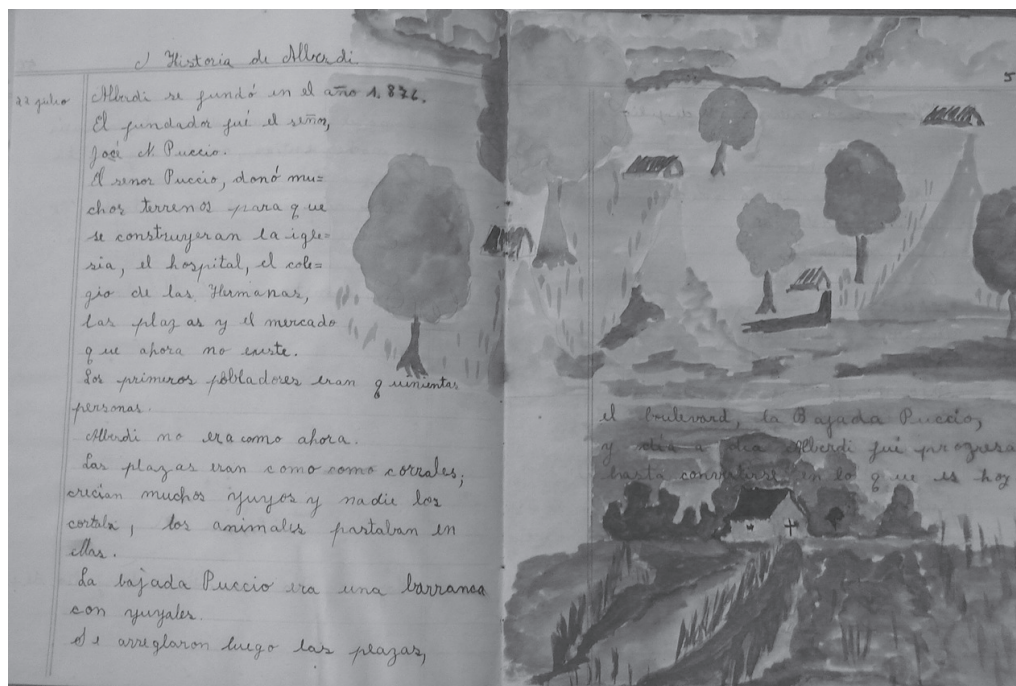 Historia de Alberdi
22 julio
Alberdi se fundó en el año 1.876.
El fundador fué el señor,
José N. Puccio.
El senor Puccio, donó mu=
chos terrenos para que
se construyeran la igle=
sia, el hospital, el cole=
gio de las Hermanas,
las plazas y el mercado
que ahora no existe.
Los primeros pobladores eran quinientas
personas.
Alberdi no era como ahora.
Las plazas eran como como corrales;
crecían muchos yuyos y nadie los
cortaba, los animales pastaban en
ellas.
La bajada Puccio era una barranca
con yuyales.
Se arreglaron luego las plazas,
5
el boulevard, la Bajada Puccio,
y día a dia Alberdi fué progresa
hasta convertirse en lo que es hoy